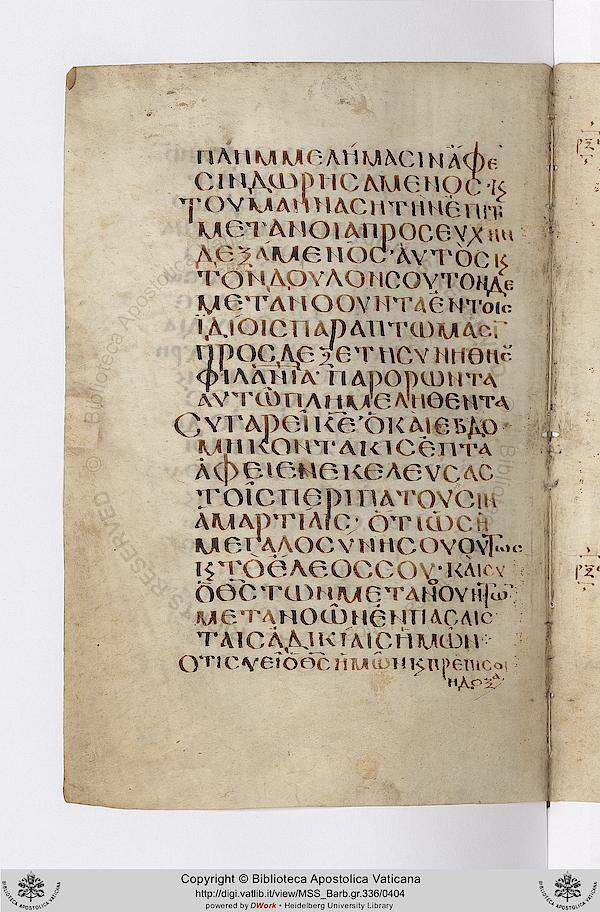 ΠΛΗΜΜΕΛΗΜΑΣΙΝ ἌΦΕ
ΣΙΝ ΔΩΡΗΣΑΜΕΝΟΣ· Ϗ
ΤΟΥ ΜΑΝΝΑΣΗ ΤΗΝ ἘΠΙ ΤΗ
ΜΕΤΑΝΟΙΑ ΠΡΟΣΕΥΧΗΝ
ΔΕΞΆΜΕΝΟΣ· ἈΥΤΟΣ Ϗ
ΤΟΝ ΔΟΥΛΟΝ ΣΟΥ ΤΟΝ ΔΕ
ΜΕΤΑΝΟΟΥΝΤΑ ἘΝ ΤΟΙΣ
ἸΔΊΟΙΣ ΠΑΡΑΠΤΩΜΑΣΙ
ΠΡΟΣΔΕΞΕ ΤΗ ΣΥΝΗΘΗ Σ
ΦΙΛΑΝΙΑ ΠΑΡΟΡΩΝ ΤΑ
ΑΥΤΩ ΠΛΗΜΕΛΗΘΕΝΤΑ
ΣΥ ΓΑΡ ΕΙ ΚΕ Ὁ ΚΑΙ ΕΒΔΟ
ΜΗΚΟΝΤΑΚΙΣ ΕΠΤΑ
ἈΦΕΙΕΝΕ ΚΕΛΕΥΣΑΣ
ΤΟΙΣ ΠΕΡΙΠΑΤΟΥΣΙΝ
ἉΜΑΡΤΙΑΙΣ· ὉΤΙ ὩΣ Ἡ
ΜΕΓΑΛΟΣΎΝΗ ΣΟΥ ΟΥΤΩΣ
Ϗ ΤΟ ἘΛΕΟΣ ΣΟΥ· ΚΑΙ ΣΥ
Ὁ ΘΣ ΤΩΝ ΜΕΤΑΝΟΥΝΤΩ
ΜΕΤΑΝΟΩΝ ἘΝ ΠΑΣΑΙΣ
ΤΑΙΣ ἈΔΙΚΊΑΙΣ ἩΜΩΝ
ΟΤΙ ΣΥ ΕΙ Ὁ ΘΣ ἩΜΩΝ Ϗ ΠΡΕΠΙ ΣΟΙ
Η ΔΟΞΑ
Biblioteca Apostolica
RIGHTS RESERVED ©
Copyright © Biblioteca Apostolica Vaticana
http://digi.vatlib.it/view/MSS_Barb.gr.336/0404
powered by DWork • Heidelberg University Library